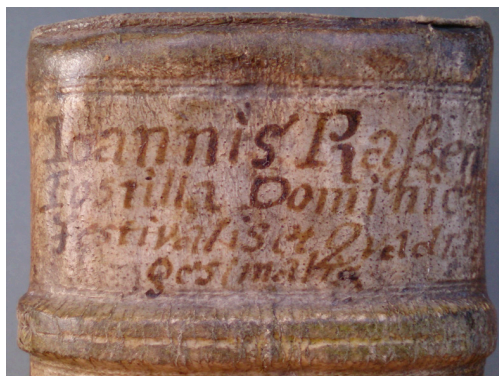 Ioannis Raßen
Postilla Dominic
Festivalis et Quadra
gesimalia